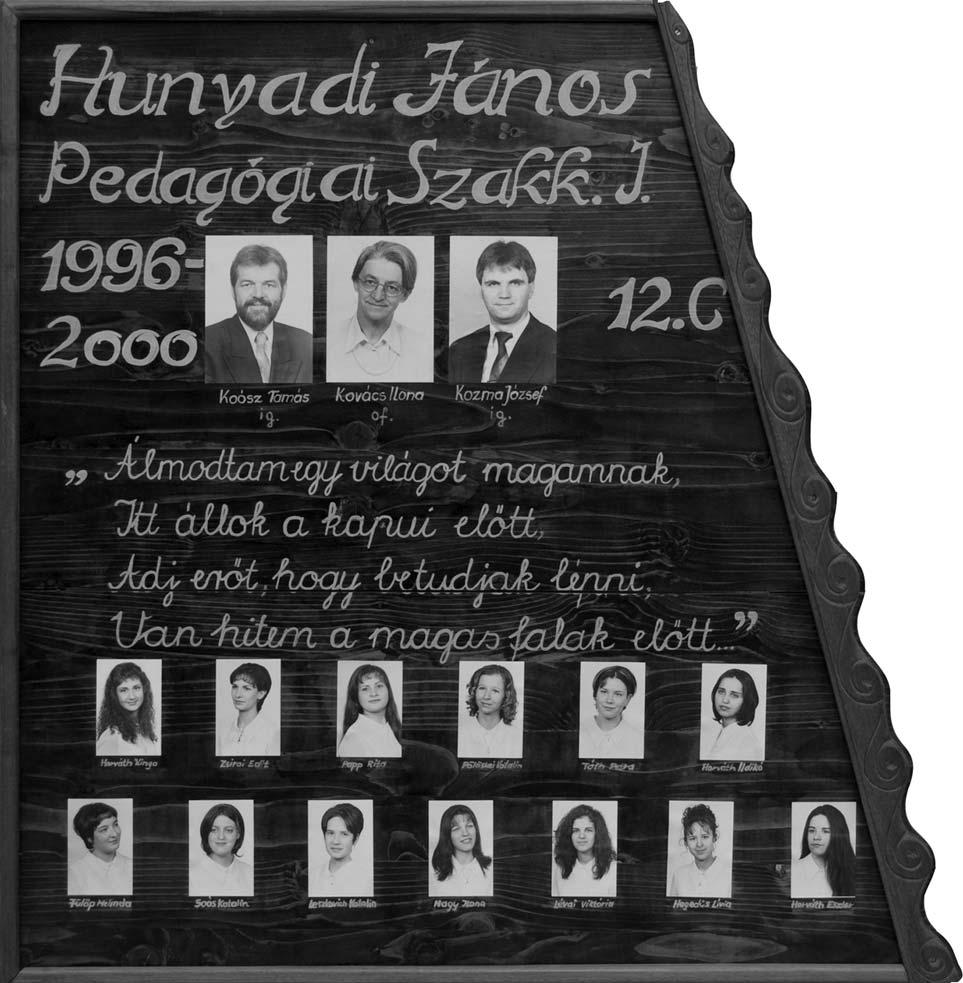 Hunyadi János
Pedagógiai Szakk. I.
1996-
2000
12.C
Koósz Tamás
ig.
Kovács Ilona
of.
Kozma József
ig.
„ Álmodtam egy világot magamnak,
Itt állok a kapui előtt,
Adj erőt, hogy betudjak lépni,
Van hitem a magas falak előtt...”
Horváth Kinga
Zsirai Edit
Papp Rita
Katalin
Tóth Petra
Horváth Ildikó
Fülöp Melinda
Soós Katalin
Katalin
Nagy Ilona
Lévai Viktória
Hegedűs Lívia
Horváth Eszter